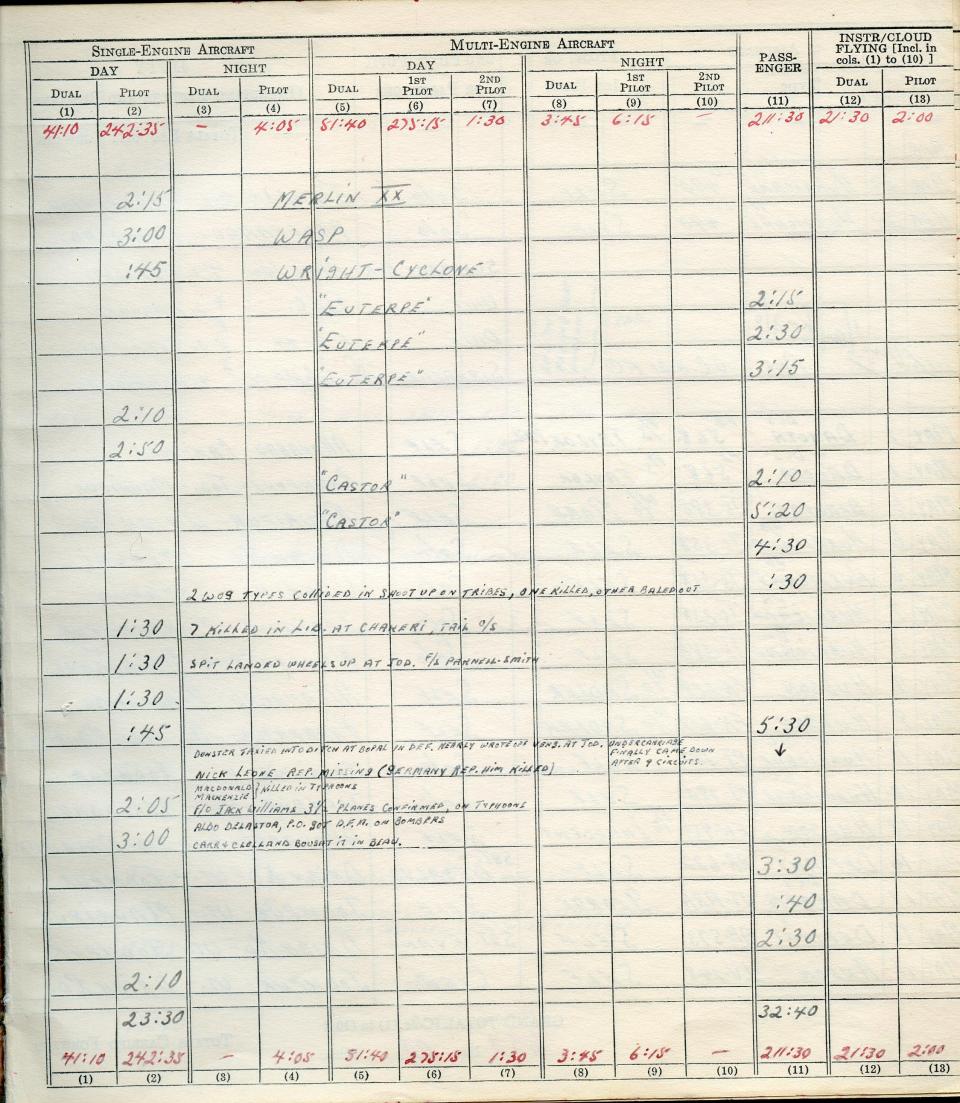 SINGLE-ENGINE AIRCRAFT MULTI-ENGINE AIRCRAFT PASS-ENGER INSTR/CLOUD FLYING [Incl. in cols. (1) to (10) ]
DAY NIGHT DAY NIGHT
DUAL PILOT DUAL PILOT DUAL 1ST PILOT 2ND PILOT DUAL 1ST PILOT 2ND PILOT DUAL PILOT
(1) (2) (3) (4) (5) (6) (7) (8) (9) (10) (11) (12) (13)
41:10 242:35 – 4:05 51:40 275:15 1:30 3:45 6:15 – 211:30 21:30 2:00
2:15 MERLIN XX
3:00 WASP
:45 WRIGHT-CYCLONE
"EUTERPE" 2:15
"EUTERPE" 2:30
"EUTERPE" 3:15
2:10
2:50
"CASTOR" 2:10
"CASTOR" 5:20
4:30
2 WOG TYPES COLLIDED IN SHOOT UP ON TRIBES, ONE KILLED, OTHER BALED OUT :30
1:30 7 KILLED IN LIB. AT CHAKERI, TAIL O/S
1:30 SPIT LANDED WHEELS UP AT JOD. F/S PARNELL-SMITH
1:30
:45 5:30
TAXIED INTO DITCH AT BOPAL IN DEF. NEARLY WROTE OFF VENG. AT JOD. UNDERCARRIAGE
FINALLY CAME DOWN
AFTER 9 CIRCUITS.
NICK LEONE REP. MISSING (GERMANY REP. HIM KILLED)
MACDONALD } KILLED IN TYPHOONS
MACKENZIE
2:05 F/O JACK WILLIAMS 3½ 'PLANES CONFIRMED, ON TYPHOONS
ALDO DELASTOA, P.O. GOT D.F.M. ON BOMBERS
3:00 CARR & CLELLAND BOUGHT IT IN BEAU.
3:30
:40
2:30
2:10
23:30 32:40
41:10 242:35 – 4:05 51:40 275:15 1:30 3:45 6:15 – 211:30 21:30 2:00
(1) (2) (3) (4) (5) (6) (7) (8) (9) (10) (11) (12) (13)